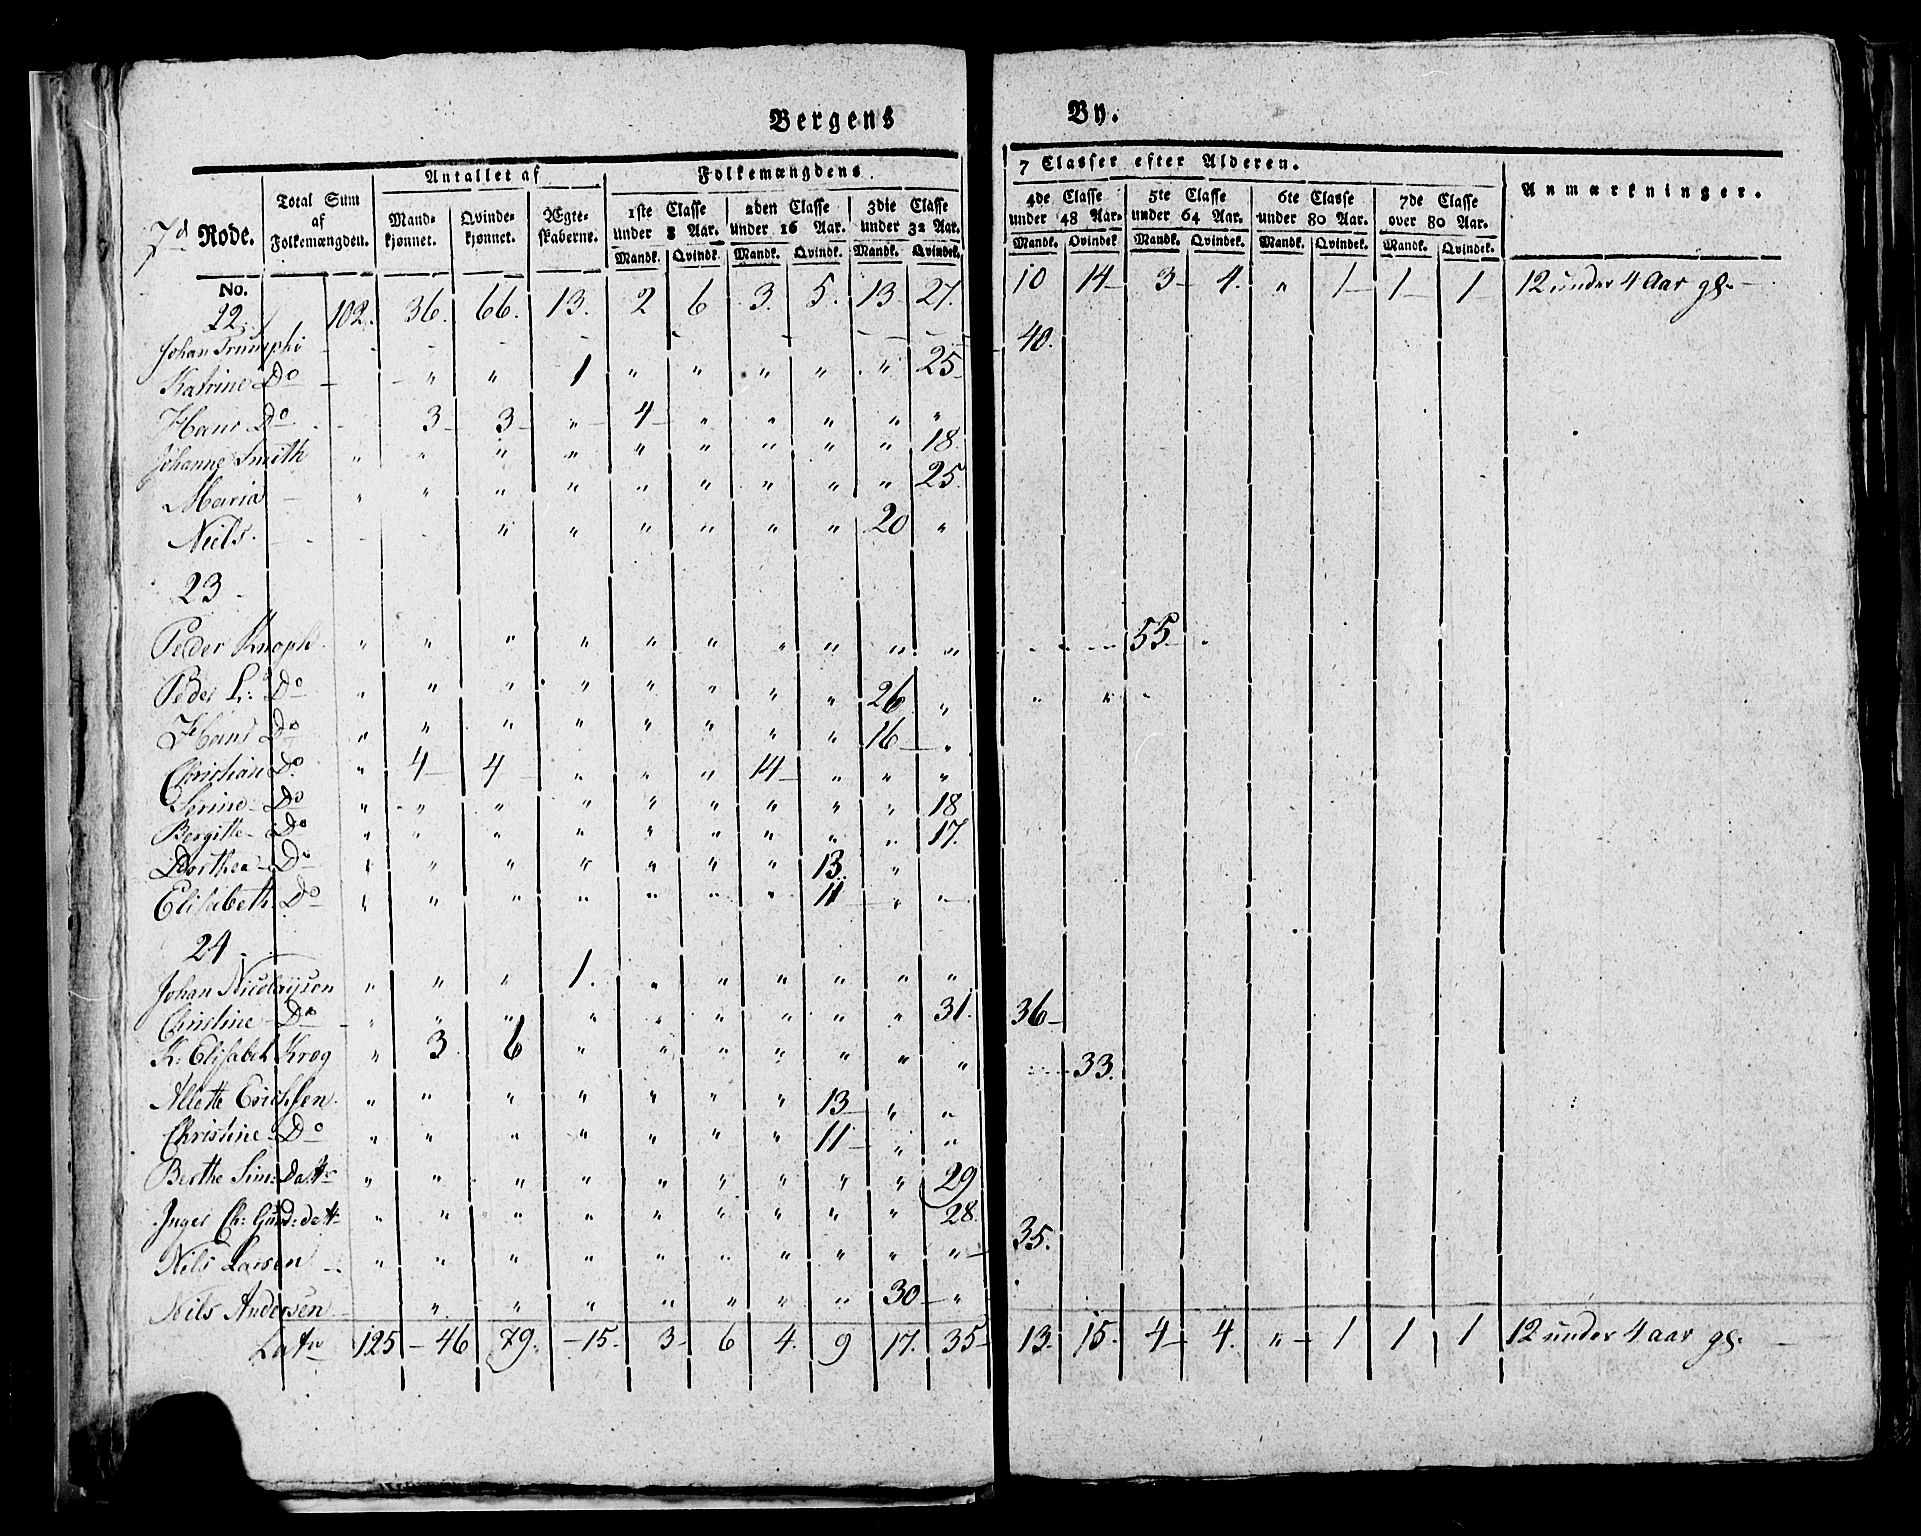 Bergens By.
7de Rode.
Total Sum af Folkemængden.
Antallet af
Mandkjønnet. Qvindekjønnet. Ægteskaberne.
Folkemængdens 7 Classer efter Alderen.
1ste Classe under 8 Aar. 2den Classe under 16 Aar. 3die Classe under 32 Aar. 4de Classe under 48 Aar. 5te Classe under 64 Aar. 6te Classe under 80 Aar. 7de Classe over 80 Aar.
Mandk. Qvindk. Mandk. Qvindk. Mandk. Qvindek. Mandk. Qvindek. Mandk. Qvindek. Mandk. Qvindek. Mandk. Qvindek.
Anmærkninger.
No.
22. 102. 36. 66. 13. 2 6 3. 5. 13 27. 10 14 3 4. " 1 1 1 12 under 4 Aar gl.
Johan Trumphi - - - - - - - 40.
Katrine Do - - " " 1 " " " " " 25
Hans Do - 3 3 " 4 " " " " "
Johanne Smith " " " " " " " " " 18.
Maria " " " " " " " " " 25.
Niels. - - " " " " " " 20 "
23
Peder Knoph " " " " " " " " " " 55
Peder L: Do " " " " " " " " 26 " " "
Hans Do " " " " " " " " 16 "
Christian Do " 4 4 " " " 14 " " "
Serine Do " " " " " " " " " 18
Bergitte Do " " " " " " " " " 17.
Dorthea Do " " " " " " " 13. "
Elisabeth Do " " " " " " " 11 " "
24
Johan Nicolaysen " " " 1. " " " " " "
Christine Do " " " " " " " " " 31. 36
K: Elisabet Krog " 3 6 " " " " " " " 33.
Allette Erichsen. " " " " " " " 13 " "
Christine Do " " " " " " " 11 " "
Berthe Sim: Datr " " " " " " " " " 29
Inger Ch: Gund: datr " " " " " " " " " 28.
Nils Larsen " " " " " " " " " " 35.
Nils Andersen " " " " " " " 30 "
Latr 125 46 79. 15. 3 6 4. 9 17. 35 13. 15. 4 4. " 1 1 1 12 under 4 aar gl.